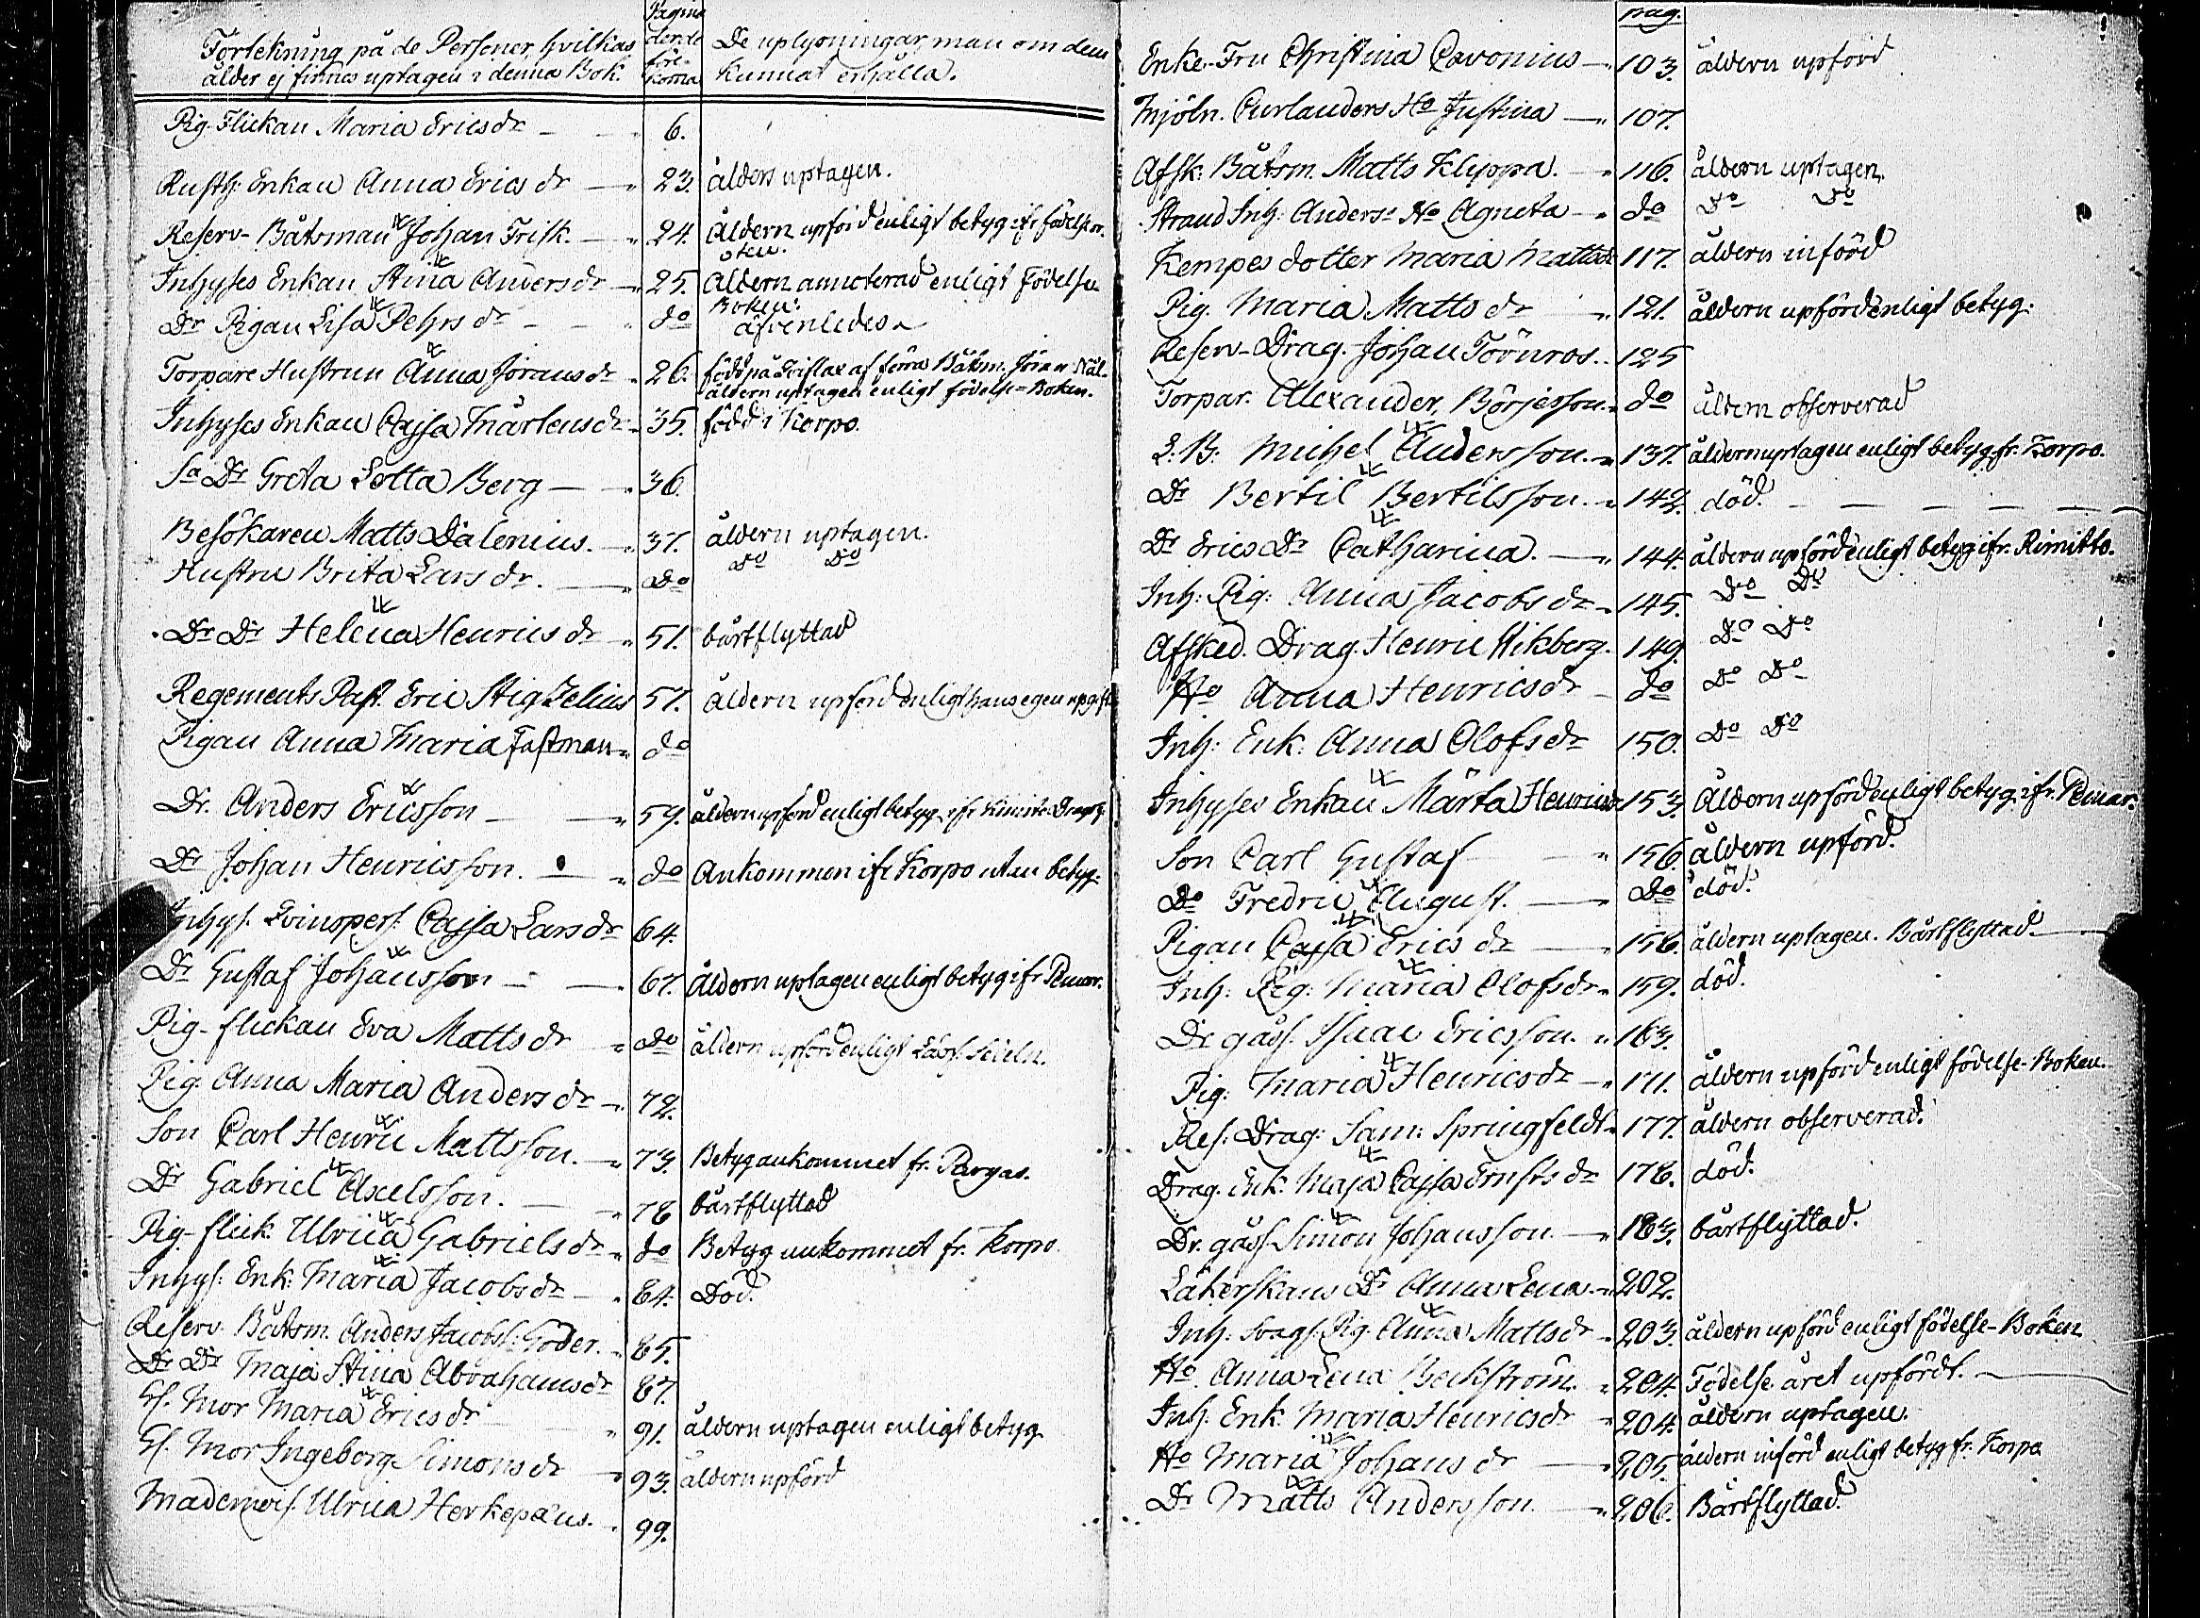 Förtekning på de Personer, hvilkas
ålder ej finnes uptagen i denna Bok.
Pagina
der de
före-
koma
De uplysningar, man om dem
kunnat erhålla.
Pig-Flickan Maria Ericsdr — 6.
Rusth: Enkan Anna Ericsdr — 23. ålders uptagen.
Reserv-Båtsman Johan Frisk. — 24. Åldern upförd enligt betyg ifr födelseorten.
Inhyses Enkan Stina Andersdr — 25. Åldern annoterad enligt Födelse Boken:
Dr Pigan Lisa Pehrsdr — do äfvenledes
Torpare Hustrun Anna Jöransdr — 26. född på af förra Båtsm. Jöran Nål.
åldern uptagen enligt födelse=Boken.
Inhyses Enkan Cajsa Mårtensdr — 35. född i Korpo.
Sa Dr Greta Lotta Berg — 36.
Besökaren Matts Dalenius. — 37. åldern uptagen.
Hustru Brita Larsdr. — Do do do
Dr Dr Helena Henricsdr — 51. bårtflyttad
Regements Past. Eric Stig Zelius 57. åldern upförd enligt hans egen upgift
Pigan Anna Maria Fastman — do
Dr. Anders Ericsson — 59. åldern upförd enligt betyg ifr Kimito
Dr Johan Henricsson. — do Ankommen ifr Korpo utan betyg.
Inhys. Qvinspers. Cajsa Larsdr 64.
Dr Gustaf Johansson — 67. åldern uptagen enligt betyg ifr Pemar.
Pig-flickan Eva Mattsdr — Do åldern upförd enligt
Pig. Anna Maria Andersdr — 72.
Son Carl Henric Mattsson. — 73. Betyg ankommet fr. Pargas.
Dr Gabriel Axelsson. — 78 bårtflyttad
Pig-flick. Ulrica Gabrielsdr — do Betyg ankommet fr. Korpo.
Inhys: Enk: Maria Jacobsdr — 84. Död.
Reserv. Båtsm. Anders Jacobs: Goder. — 85.
Dr Dr Maja Stina Abrahamsdr 87.
Gl. Mor Maria Ericsdr — 91. åldern uptagen enligt betyg
Gl. Mor Ingeborg Simonsdr — 93. åldern upförd
Mademois. Ulrica Herkepæus. — 99.
pag.
Enke-Fru Christina Cavonius — 103. åldern upförd
Mjöln. Curlanders Ho Justina — 107.
Afsk: Båtsm. Matts Klippa. — 116. åldern uptagen.
Strand Inh: Anders: Ho Agneta — do do do
Kempes dotter Maria Mattsdr 117. åldern införd
Pig. Maria Mattsdr — 121. åldern upförd enligt betyg.
Reserv-Drag. Johan Törnros. — 125
Torpar. Alexander Börjesson. — do åldern observerad
Michel Andersson. — 137. åldern uptagen enligt betyg fr. Korpo.
Dr Bertil Bertilsson. — 142. död. —
Dr Erics Dr Catharina. — 144. åldern upförd enligt betyg ifr. Rimitto.
Inh: Pig: Anna Jacobsdr — 145. Do Do
Afsked. Drag. Henric Wikberg. 149. Do Do
Ho Anna Henricsdr — do Do Do
Inh: Enk: Anna Olofsdr 150. Do Do
Inhyses Enkan Märta Henricsdr 153. Åldern upförd enligt betyg ifr. Pemar.
Son Carl Gustaf — 156. åldern upförd.
Do Fredric August. — Do död.
Pigan Cajsa Ericsdr — 158. åldern uptagen. Bårtflyttad.
Inh: Pig: Maria Olofsdr — 159. död.
Dr gåss. Isaac Ericsson. — 163.
Pig: Maria Henricsdr — 171. åldern upförd enligt födelse-Boken.
Res: Drag: Sam: Springfeldt — 177. åldern observerad.
Drag. Enk. Maja Cajsa Ernstsdr 178. död.
Dr. gåss. Simon Johansson. — 183. bårtflyttad.
Dr Anna Lena. — 202.
Inh: Pig. Anna Mattsdr — 203. åldern upförd enligt födelse-Boken
Ho. Anna Lena Beckström. — 204. Födelse året upfördt.
Inh. Enk. Maria Henricsdr — 204. åldern uptagen.
Ho Maria Johansdr — 205. åldern införd enligt betyg fr. Korpo
Dr Matts Andersson. — 206. Bårtflyttad.